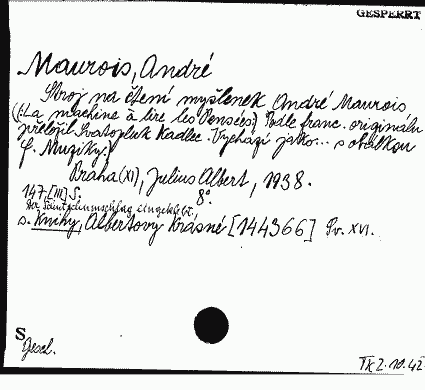 GESPERRT
Maurois, André
Stroj na čtení myšlenek André Maurois
(:La machine à lire les Pensées:) Podle franc. originálu
přeložil Svatopluk Kadlec. Vychází jako... s obálkou
f. Muziky.)
Praha (XI), Julius Albert, 1938.
147, [III] S. 8°.
Der Schutzumschlag eingeklebt.
s. Knihy, Albertovy Krásné [144366] Sv. XVI.
S
Gesch.
Tk 2.10.42